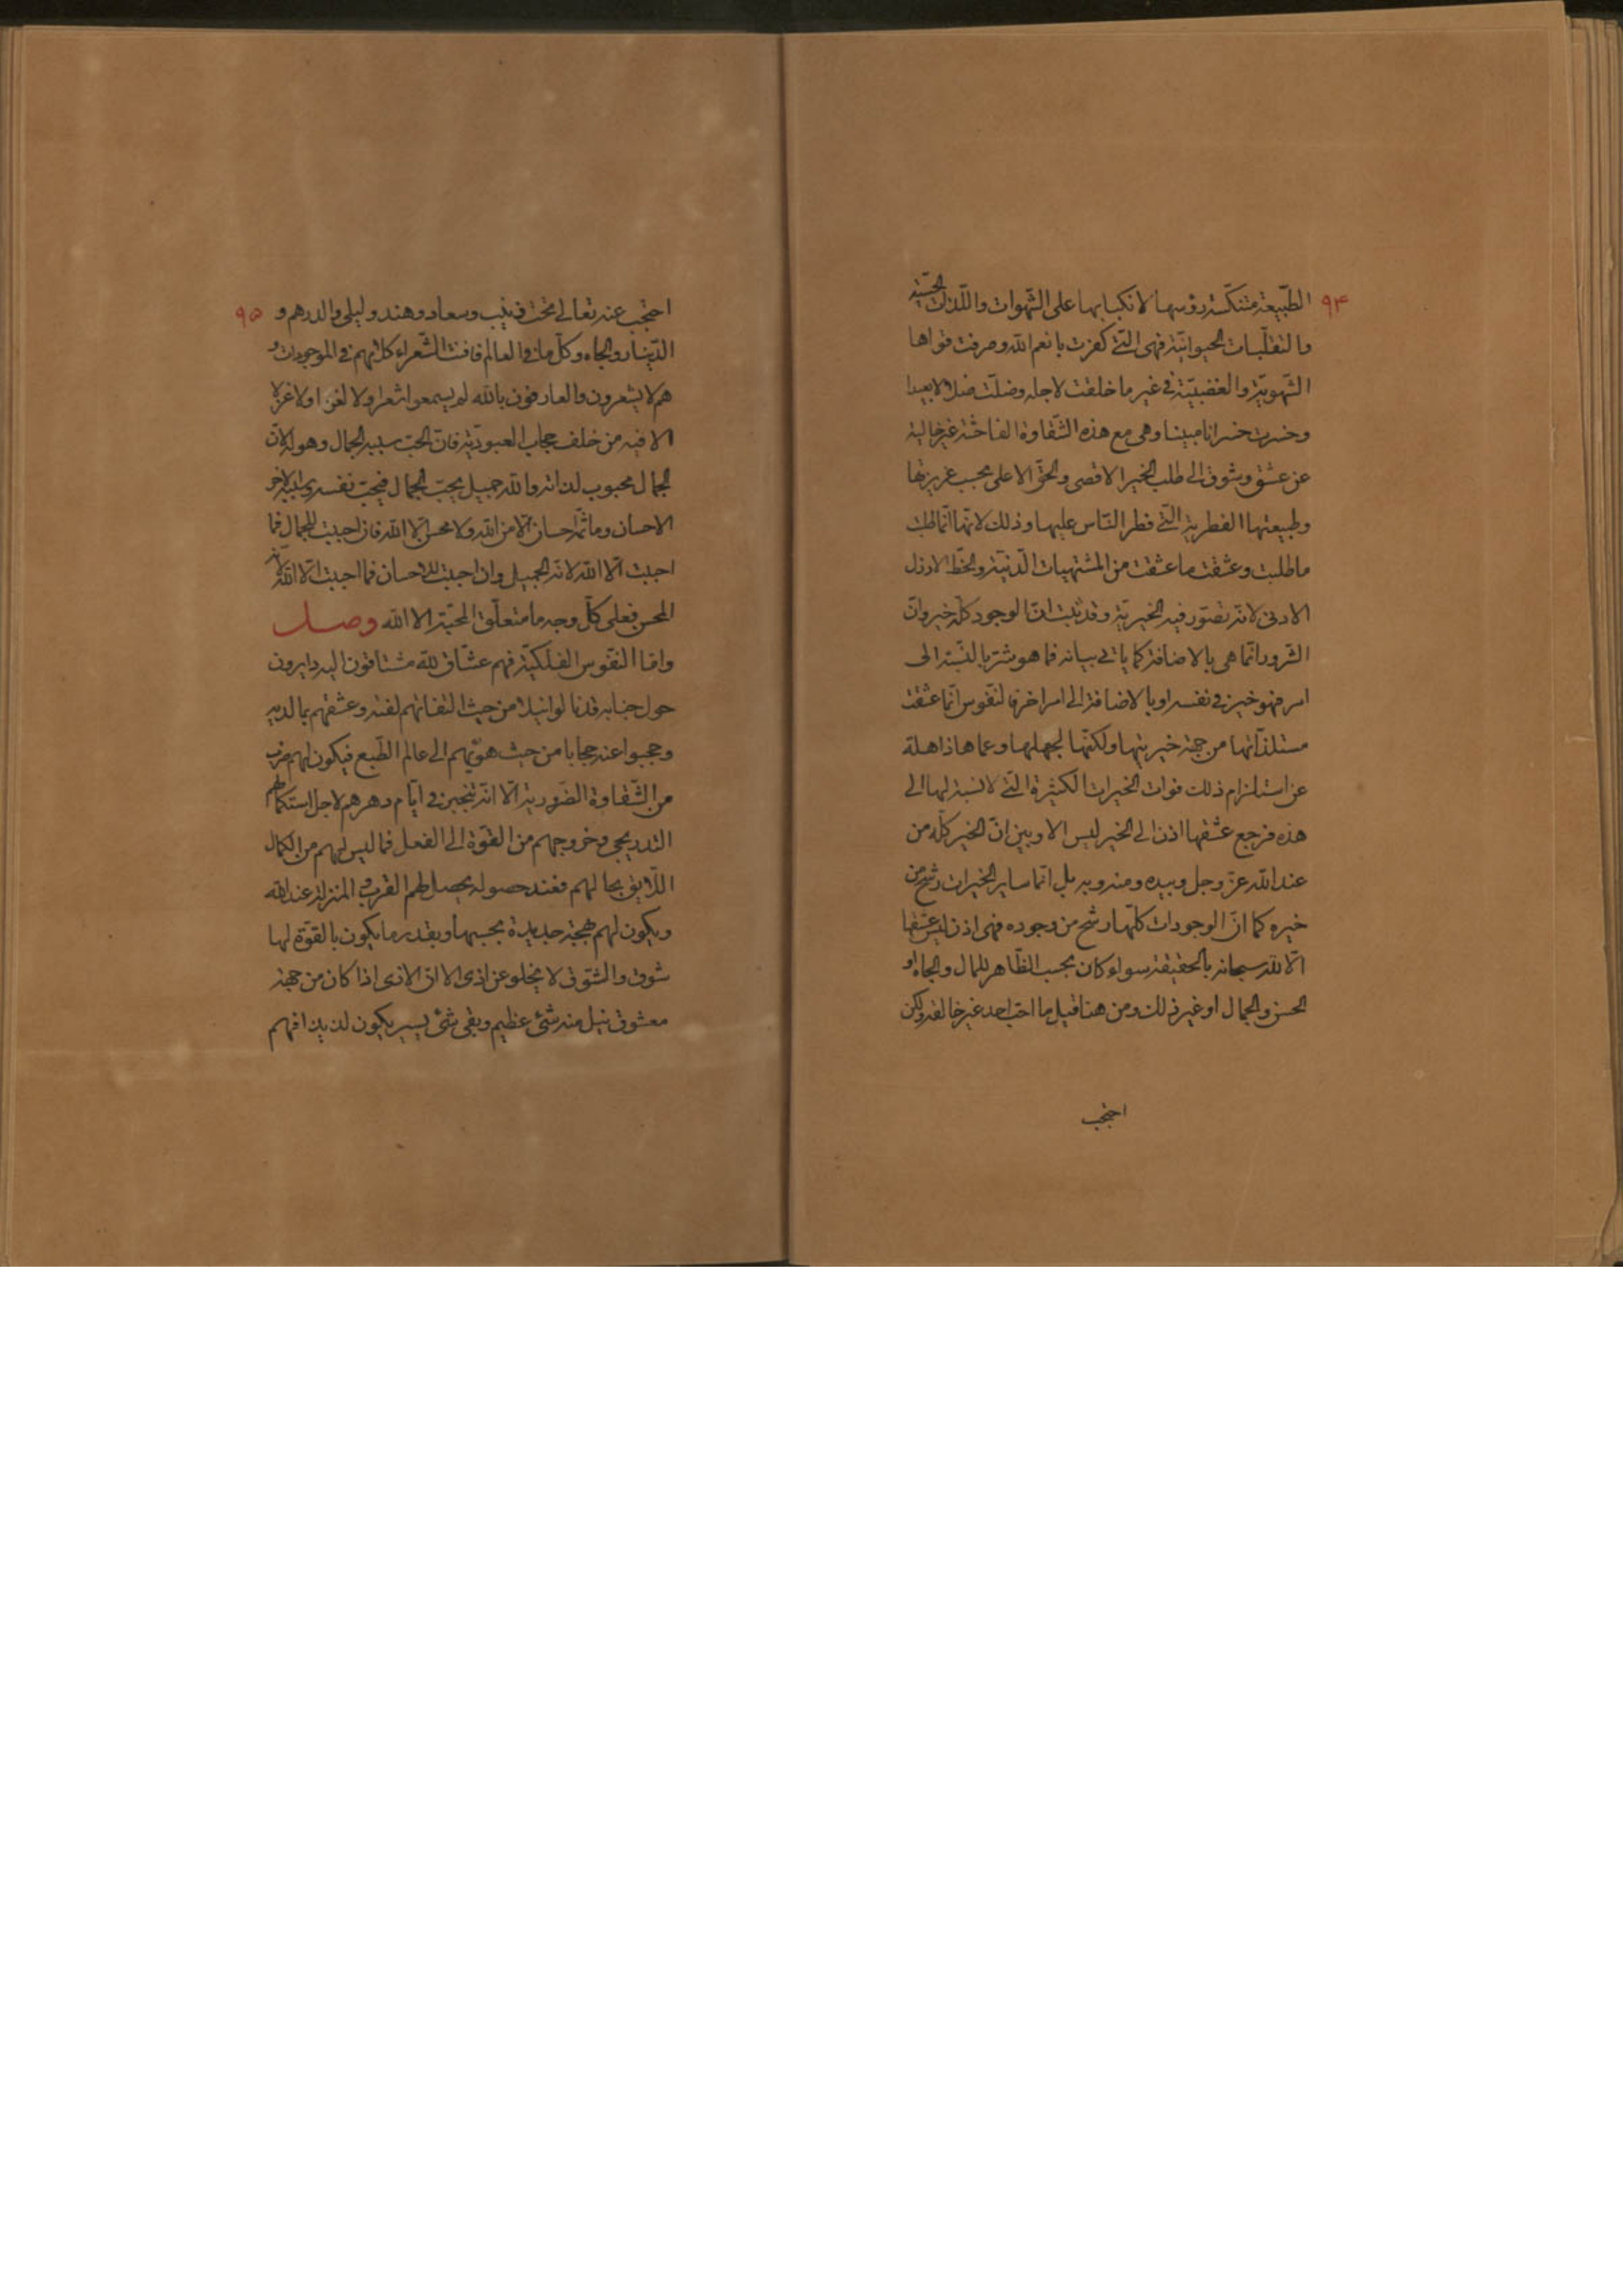 ۹۴
الطّبيعة متنكّسة رؤسها لانكبابها على الشّهوات واللّذات الحسّية
والتقلّبات الحيوانيّة فهى الّتى كفرت بانعم الله وصرفت قواها
الشّهويّة والغضبيّة فى غير ما خلقت لاجله وضلّت ضلالا بعيدا
وخسرت خسرانا مبينا وهى مع هذه الشّقاوة الفاحشة غير خالية
عن عشق وشوق الى طلب الخير الاقصى والحقّ الاعلى بحسب غريزتها
وطبيعتها الفطرية الّتى فطر النّاس عليها وذلك لانّها انّما طلبت
ما طلبت وعشقت ما عشقت من المشتهيات الدّنيّة والحظّ الارذل
الادنى لانّه تصوّر فيه الخيريّة وقد ثبت انّ الوجود كلّه خير وانّ
الشّرور انّما هى بالاضافة كما ياتى بيانه فما هو شرّ بالنّسبة الى
امر فهو خير فى نفسه او بالاضافة الى امر اخر فالنّفوس انّما عشقت
مستلذّاتها من جهة خيريتها ولكنّها لجهلها وعماها ذاهلة
عن استلزام ذلك فوات الخيرات الكثيرة الّتى لا نسبة لها الى
هذه فرجع عشقها اذن الى الخير ليس الا وبين انّ الخير كلّه من
عند الله عزّ وجل وبيده ومنه وبه بل انّما ساير الخيرات رشح من
خيره كما انّ الوجودات كلّها رشح من وجوده فهى اذن ليس عشقها
الّا لله سبحانه بالحقيقة سواء كان بحسب الظّاهر للمال والجاه او
الحسن والجمال او غير ذلك ومن هنا قيل ما احبّ احد غير خالقه ولكن
احتجب
۹۵
احتجب عنه تعالى تحت زينب وسعاد وهند وليلى والدرهم و
الدّينار والجاه وكلّ ما فى العالم فافنت الشّعراء كلامهم فى الموجودات و
هم لا يشعرون والعارفون بالله لم يسمعوا شعرا ولا لغزا ولا غزلا
الا فيه من خلف حجاب العبوديّة فانّ الحبّ سببه الجمال وهو له لانّ
الجمال محبوب لذاته والله جميل يحبّ الجمال فيحبّ نفسه وسببه الاخر
الاحسان وما ثمّ احسان الّا من الله ولا محسن الّا الله فان احببت للجمال فما
احببت الّا الله لانّه الجميل وان احببت للاحسان فما احببت الّا الله لانّه
المحسن فعلى كلّ وجه ما متعلّق المحبّة الا الله وصل
وامّا النّفوس الفلكيّة فهم عشّاق لله مشتاقون اليه دايرون
حول جنابه قد نالوا نيلا من حيث التفاتهم لفتة وعشقهم بما لديه
وحجبوا عنه حجابا من حيث هويّهم الى عالم الطّبع فيكون لهم ضرب
من الشّقاوة الضّرورية الّا انّه تنجبر فى ايّام دهرهم لاجل استكمالهم
التدريجى وخروجهم من القوّة الى الفعل فما ليس لهم من الكمال
اللّايق بحالهم فعند حصوله يحصل لهم القرب والمنزلة عند الله
ويكون لهم بهجة جديدة بحسبها وبقدر ما يكون بالقوّة لها
شوق والشّوق لا يخلو عن اذى الا انّ الاذى اذا كان من جهة
معشوق نيل منه شئ عظيم وبقى شئ يسير يكون لذيذا فهم